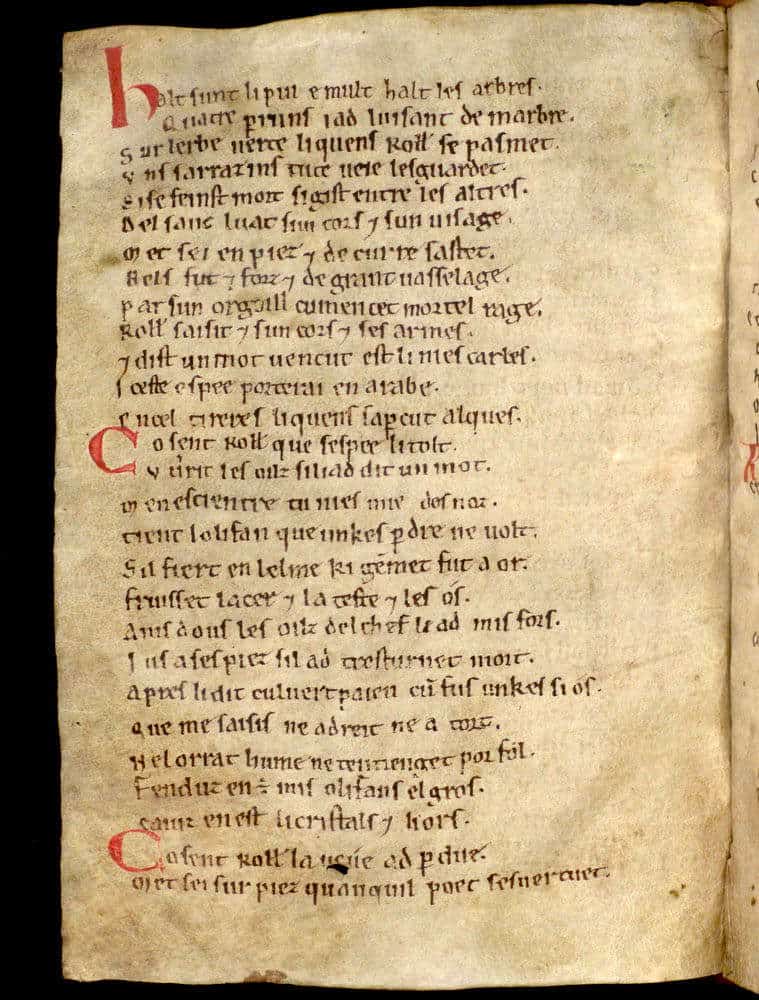 halt sunt li pui e mult halt les arbres.
Quatre perruns iad luisant de marbre.
Sur lerbe verte li quens Roll se pasmet.
Uns sarrazins tute veie lesguardet.
Si se feinst mort si gist entre les altres.
Del sanc luat sun cors ⁊ sun visage.
Met sei en piez ⁊ de curre sastet.
Bels fut ⁊ forz ⁊ de grant vasselage.
Par sun orgoill cumencet mortel rage.
Roll saisit ⁊ sun cors ⁊ ses armes.
⁊ dist un mot vencut est li nies carles.
Iceste espee porterai en arabe.
En cel tireres li quens saperçut alques.
Co sent Roll que sespee li tolt.
Uvrit les oilz si li ad dit un mot.
Men escientre tu nies mie des noz.
Tient lolifan que unkes perdre ne volt.
Sil fiert en lelme ki gemmet fut a or.
Fruisset lacer ⁊ la teste ⁊ les os.
Amsdous les oilz del chef li ad mis fors.
Jus a ses piez sil ad tresturnet mort.
Apres li dit culvert paien cum fus unkes si os.
Que me saisis ne a dreit ne a tort.
Ne lorrat hume ne tentienget por fol.
Fenduz en est mis olifans el gros.
Caiuz en est li cristals ⁊ li ors.
Co sent Roll la veue ad perdue.
Met sei sur piez quanquil poet sesvertuet.